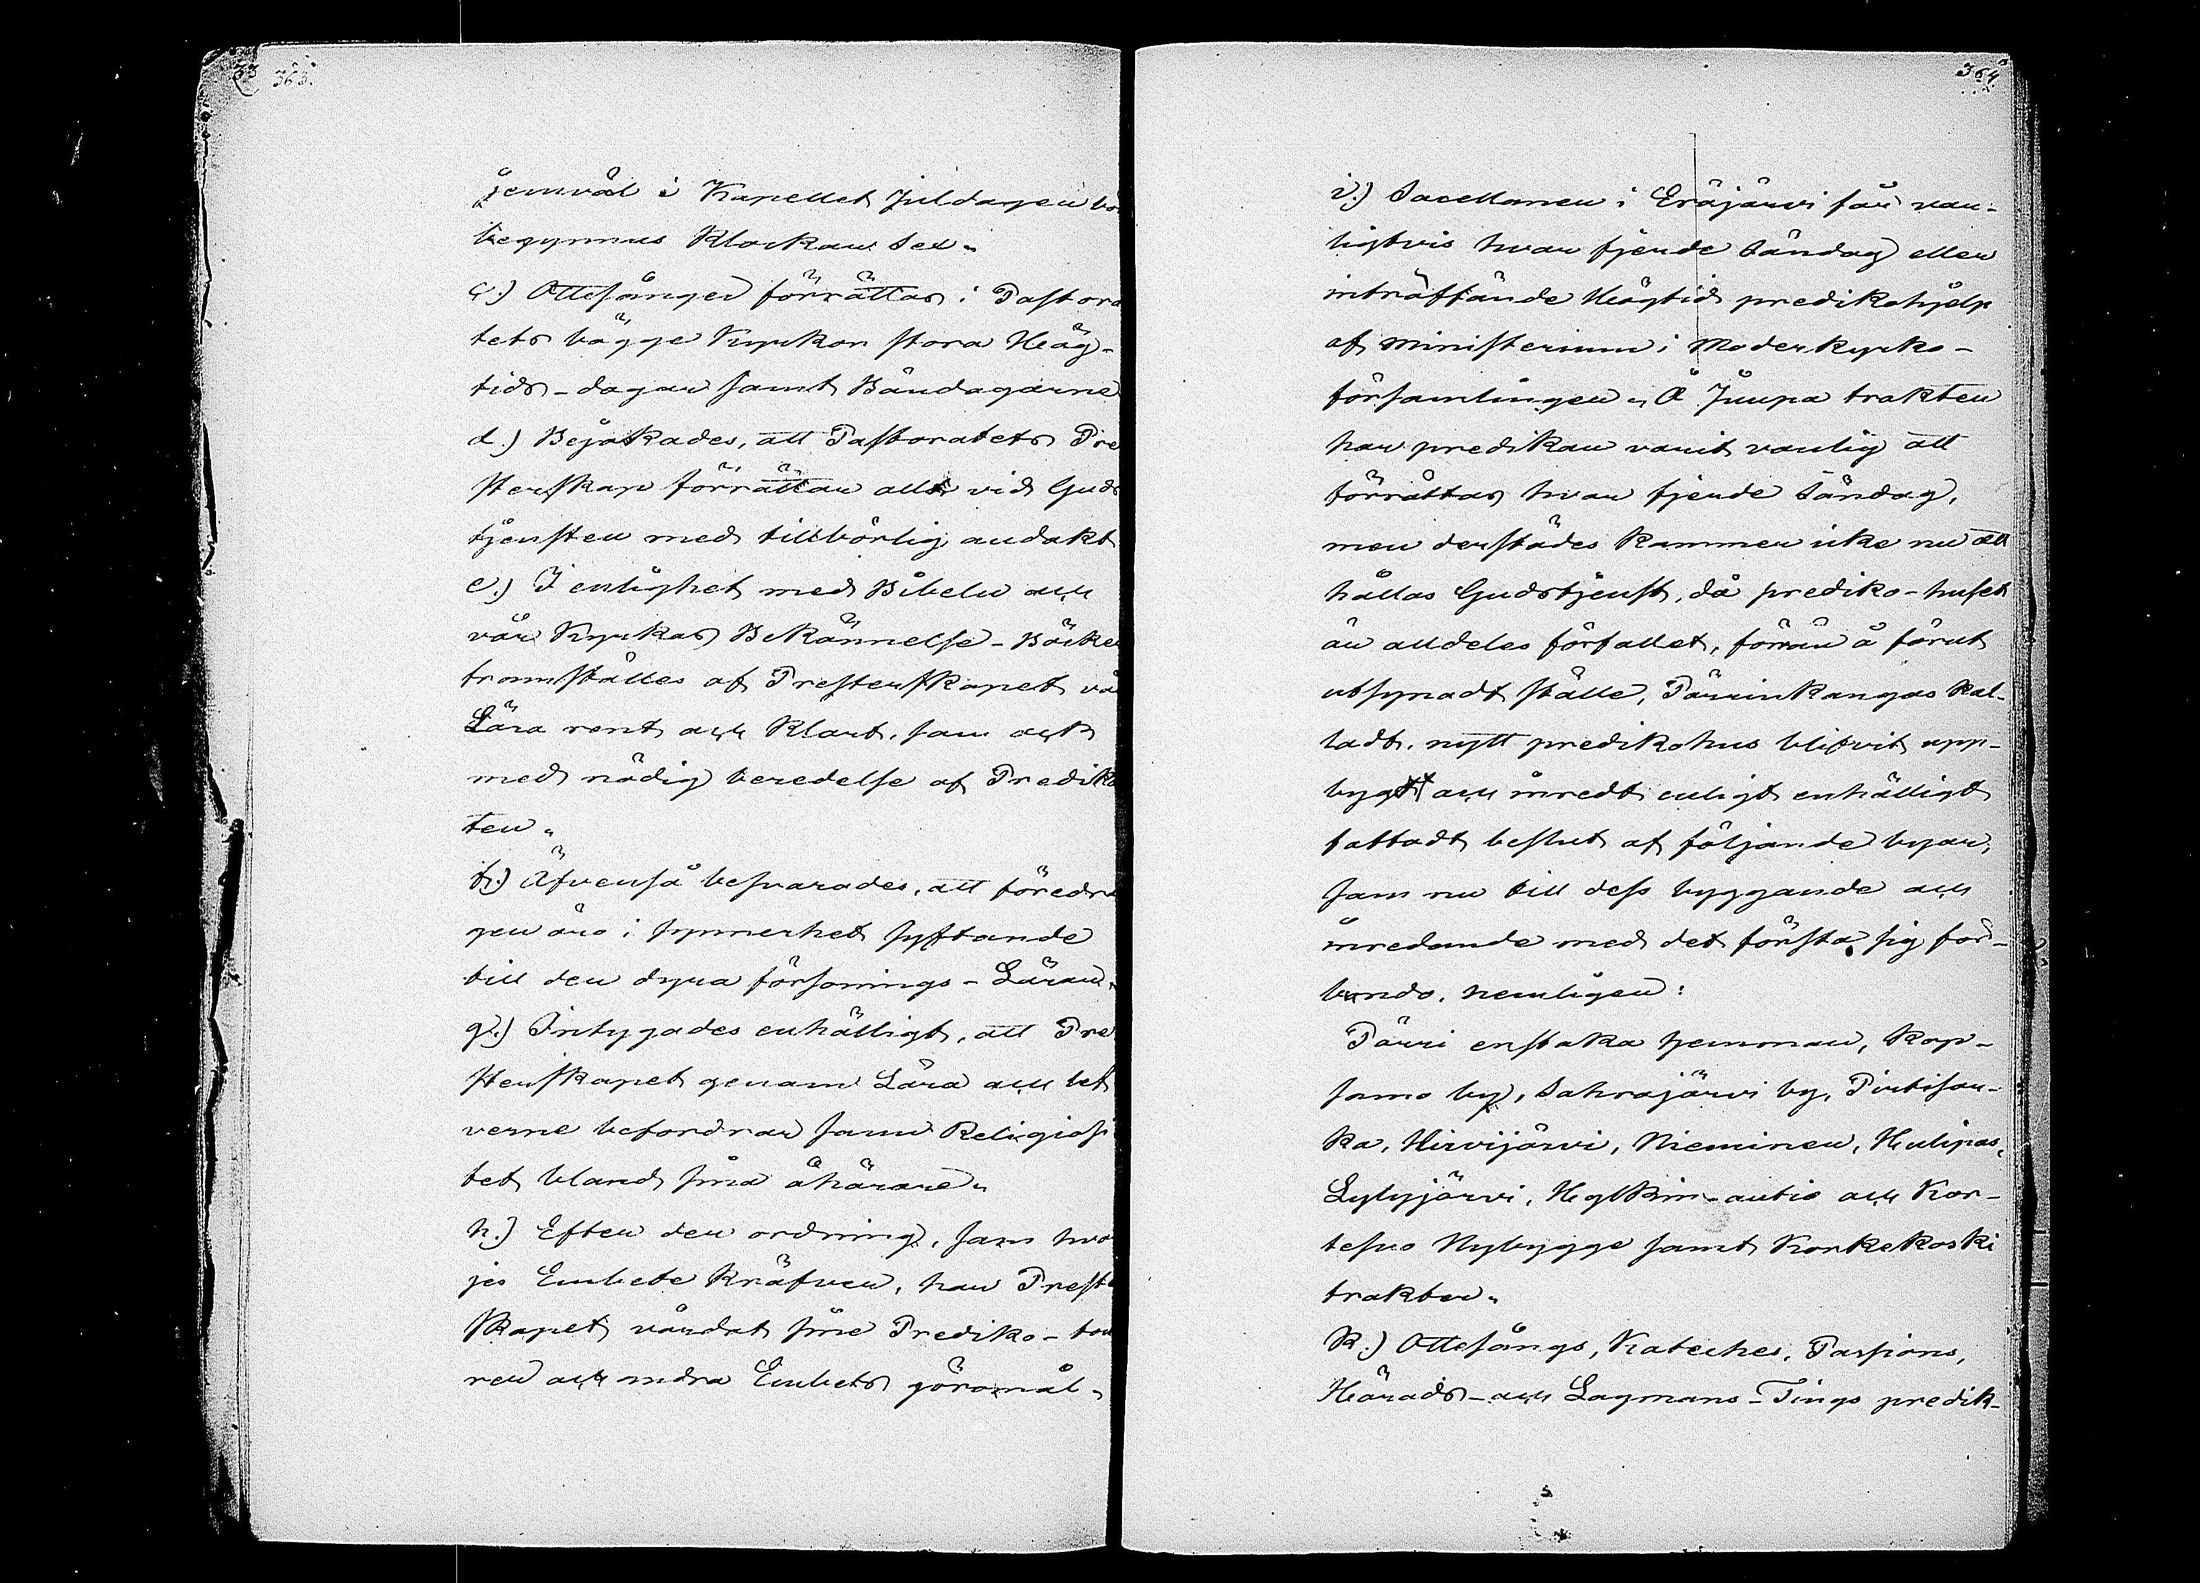 33 363.
jemväl i Kapellet Juldagen bö
begynnas Klockan Sex.
c.) Ottesånger förrättas i Pastora
tets bägge Kyrkor stora Hög-
tids-dagar samt Böndagarne
d.) Bejakades, att Pastoratets Pre
sterskap förrättar allt vid Guds
tjensten med tillbörlig andakt
e.) I enlighet med Bibeln och
vår Kyrkas Bekännelse-Böcker
framställes af Presterskapet vår
Lära rent och klart, som ock
med nödig beredelse af Predika
ten.
f.) Äfvenså besvarades, att föredra
gen äro i synnerhet syftande
till den dyra försonings-Läran.
g.) Intygades enhälligt, att Pre
sterskapet genom Lära och lef
verne befordrar sann Religiosi
tet bland sina åhörare.
h.) Efter den ordning, som hva
jes Embete kräfver, har Prest
skapet vårdat sine Prediko-tou
ren och andra Embets göromål.
364
i.) Sacellanen i Eräjärvi får van-
ligtvis hvar fjerde Söndag eller
inträffande Högtid predikohjelp
af Ministerium i Moderkyrko-
församlingen. Å Juupa trakten
har predikan varit vanlig att
förrättas hvar fjerde Söndag,
men derstädes kommer icke nu att
hållas Gudstjenst, då prediko-huset
är alldeles förfallet, förrän å förut
utsynadt ställe, Pärrinkangas kal-
ladt, nytt predikohus blifvit upp-
bygdt och inredt enligt enhälligt
fattadt beslut af följande byar,
som nu till dess byggande och
inredande med det första sig för-
bundo, nemligen:
Pärri enstaka hemman, Kop-
samo by, Sahrajärvi by, Pirttisaa-
ka, Hirvijärvi, Nieminen, Hulipas,
Lylyjärvi, Hyltkin-autio och Kor-
tesuo Nybygge samt Korkekoski
trakter.
k.) Ottesångs, Kateches, Passions,
Härads- och Lagmans-Tings predik-